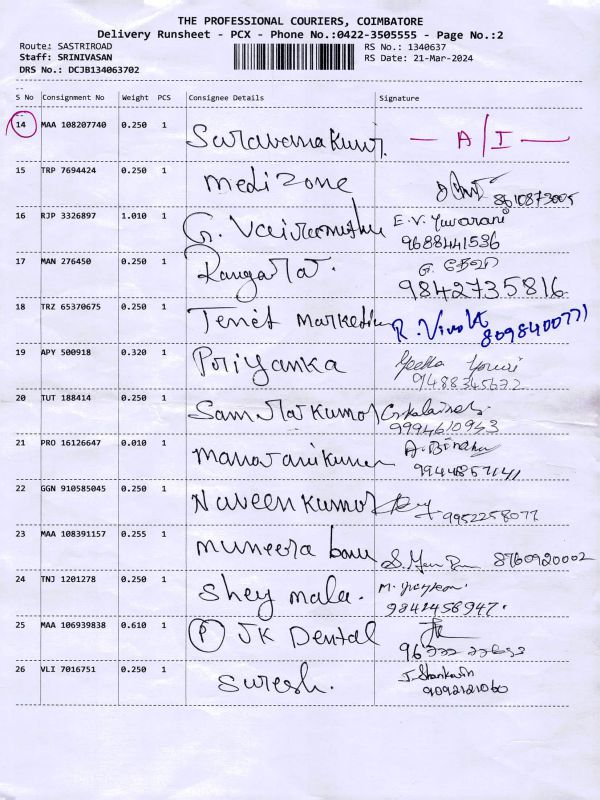 THE PROFESSIONAL COURIERS, COIMBATORE
Delivery Runsheet - PCX - Phone No.:0422-3505555 - Page No.:2
Route: SASTRIROAD RS No.: 1340637
Staff: SRINIVASAN RS Date: 21-Mar-2024
DRS No.: DCJB134063702
S No Consignment No Weight PCS Consignee Details Signature
14 MAA 108207740 0.250 1 A/I
15 TRP 7694424 0.250 1 Medizone 8610873005
16 RJP 3326897 1.010 1 G. Vairamuthu E.V. Yuvarani
9688441536
17 MAN 276450 0.250 1 G.
9842735816
18 TRZ 65370675 0.250 1 Tenet Marketing R.
8098400771
19 APY 500918 0.320 1 Priyanka
9488345672
20 TUT 188414 0.250 1
9994610943
21 PRO 16126647 0.010 1
22 GGN 910585045 0.250 1 Naveen Kumar 9952258077
23 MAA 108391157 0.255 1 Muneera banu 8760920002
24 TNJ 1201278 0.250 1 Shey mala. M.
25 MAA 106939838 0.610 1 P JK Dental
26 VLI 7016751 0.250 1 Suresh.
9092121060